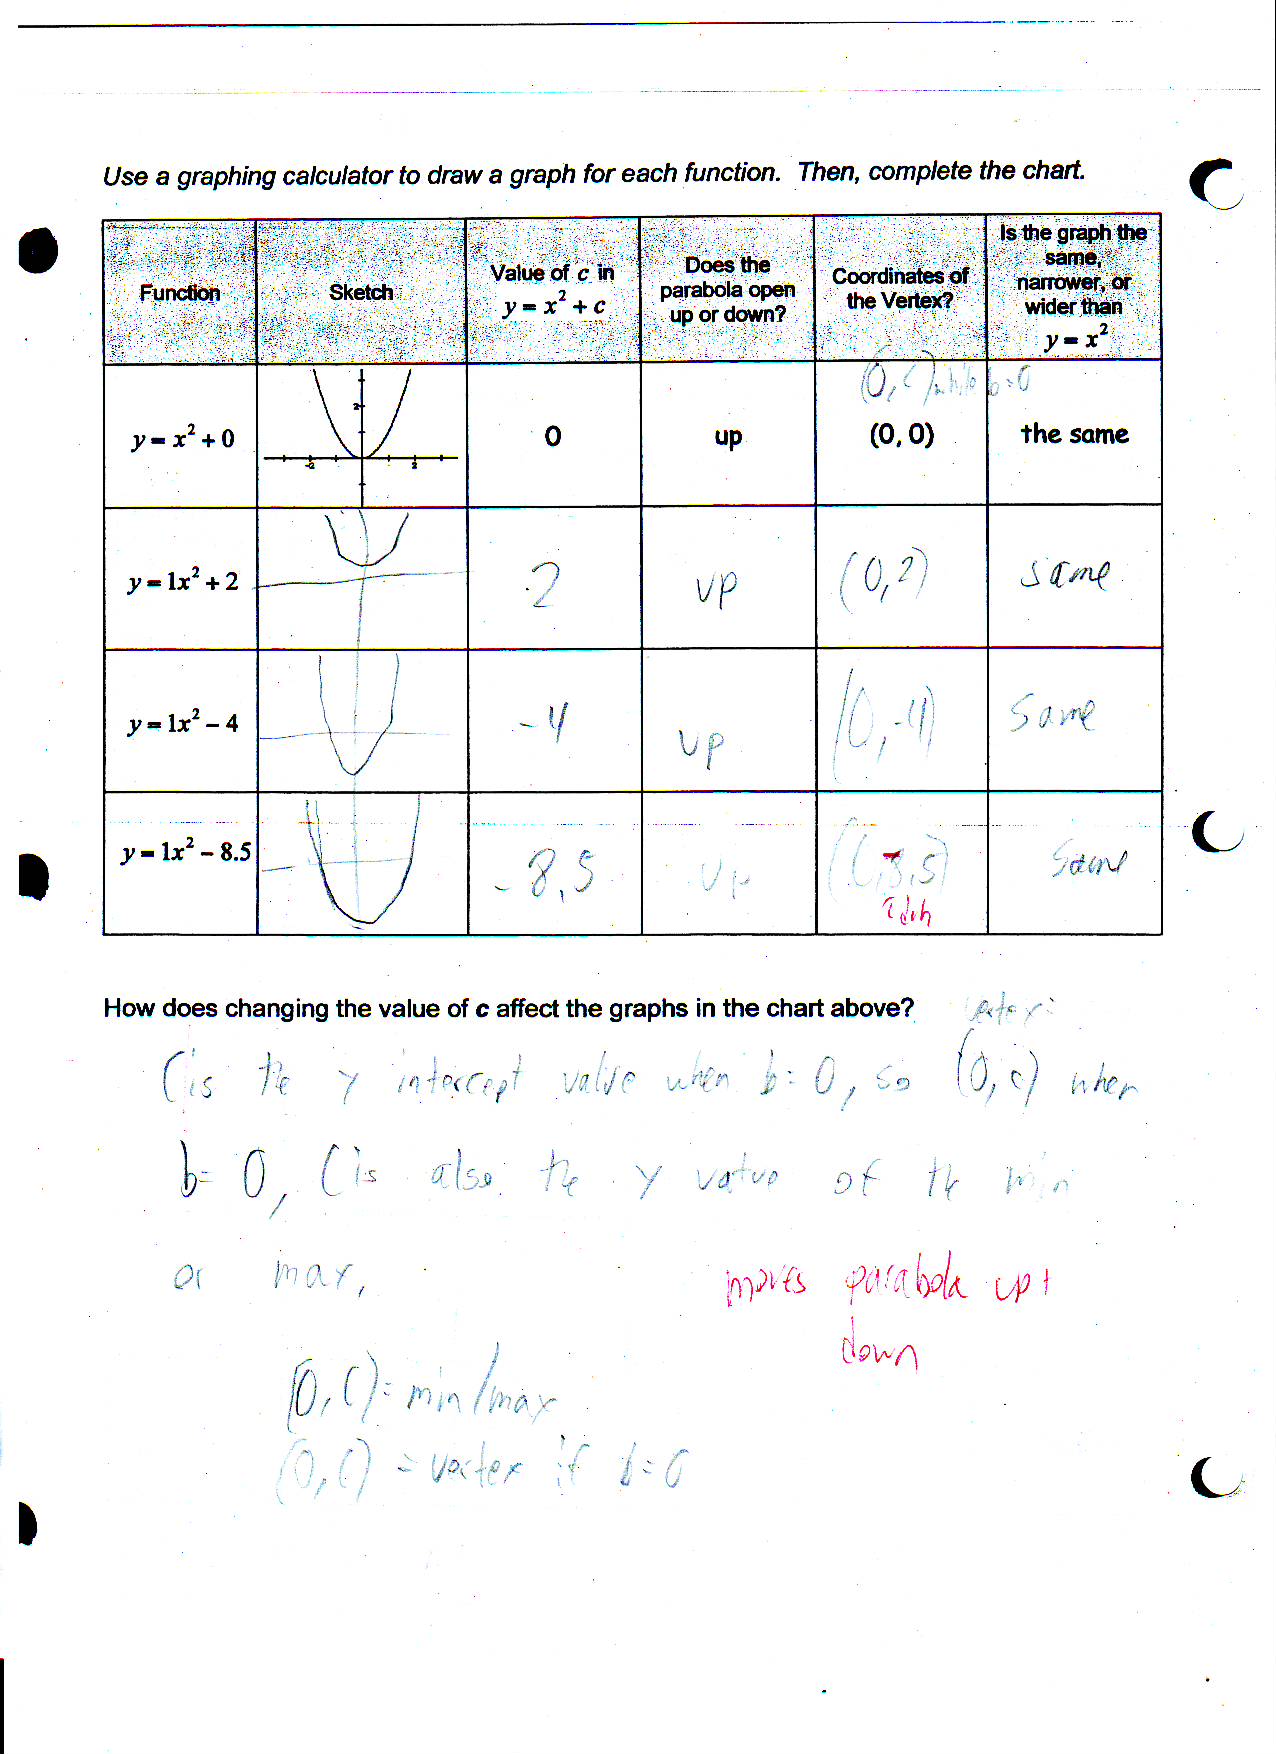 Use a graphing calculator to draw a graph for each function. Then, complete the chart.
Function
Sketch
Value of c in
y = x² + c
Does the
parabola open
up or down?
Coordinates of
the Vertex?
Is the graph the
same,
narrower, or
wider than
y = x²
(0, C) while b=0
y = x² + 0
2
-2
2
0
up
(0, 0)
the same
y = 1x² + 2
2
up
(0,2)
same
y = 1x² – 4
-4
up
(0,-4)
same
y = 1x² – 8.5
-8.5
up
8.5)
same
How does changing the value of c affect the graphs in the chart above?
vertex:
C is the y intercept value when b=0, so (0, c) when
b=0, C is also the y value of the min
or max,
moves parabola up +
down
(0, C) = min/max
(0, C) = vertex if b=0